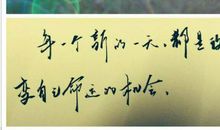 每一个新的一天,都是改
变自己命运的机会。